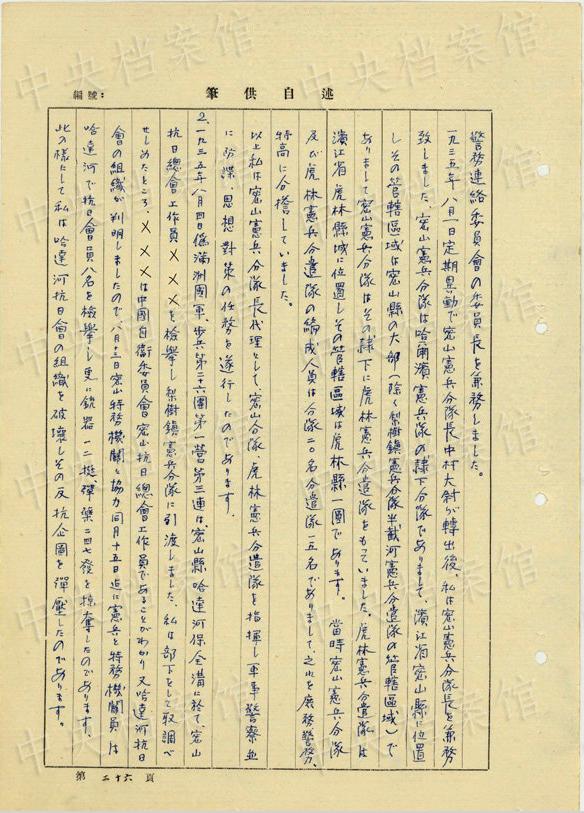 筆供自述
編號：
警務連絡委員會の委員長を兼務しました。
一九三五年八月一日定期異動で密山憲兵分隊長中村大尉が轉出後、私は密山憲兵分隊長を兼務
致しました、密山憲兵分隊は哈爾濱憲兵隊の隸下分隊でありまして、濱江省密山縣に位置
しその管轄區域は密山縣の大部（除く梨樹鎮憲兵分隊半截河憲兵分遣隊の管轄區域）で
ありまして密山憲兵分隊はその隸下に虎林憲兵分遣隊をもっていました。虎林憲兵分遣隊は
濱江省虎林縣城に位置しその管轄區域は虎林縣一圓であります。當時密山憲兵分隊
及び虎林憲兵分遣隊の編成人員は分隊二〇名分遣隊一五名でありまして、之れを庶務警務、
特高に分掌していました。
以上私は密山憲兵分隊長代理として、密山分隊、虎林憲兵分遣隊を指揮し軍事警察並
に防諜、思想對策の任務を遂行したのであります。
2.一九三五年八月四日偽滿洲國軍步兵第二十六團第一營第三連は密山縣哈達河保全溝に於て、密山
抗日總會工作員×××を檢擧し梨樹鎮憲兵分隊に引渡しました、私は部下をして取調べ
せしめたところ、×××は中國自衛委員會密山抗日總會工作員であることがわかり又哈達河抗日
會の組織が判明しましたので、八月十三日密山特務機關と協力同月十五日迄に憲兵と特務機關員は
哈達河で抗日會員八名を檢擧し更に銃器一二挺、彈藥二四七發を掠奪したのであります、
此の樣にして私は哈達河抗日會の組織を破壞しその反抗企圖を彈壓したのであります。
第二十六頁
中央档案馆
中央档案馆
中央档案馆
中央档案馆
中央档案馆
中央档案馆
中央档案馆
中央档案馆